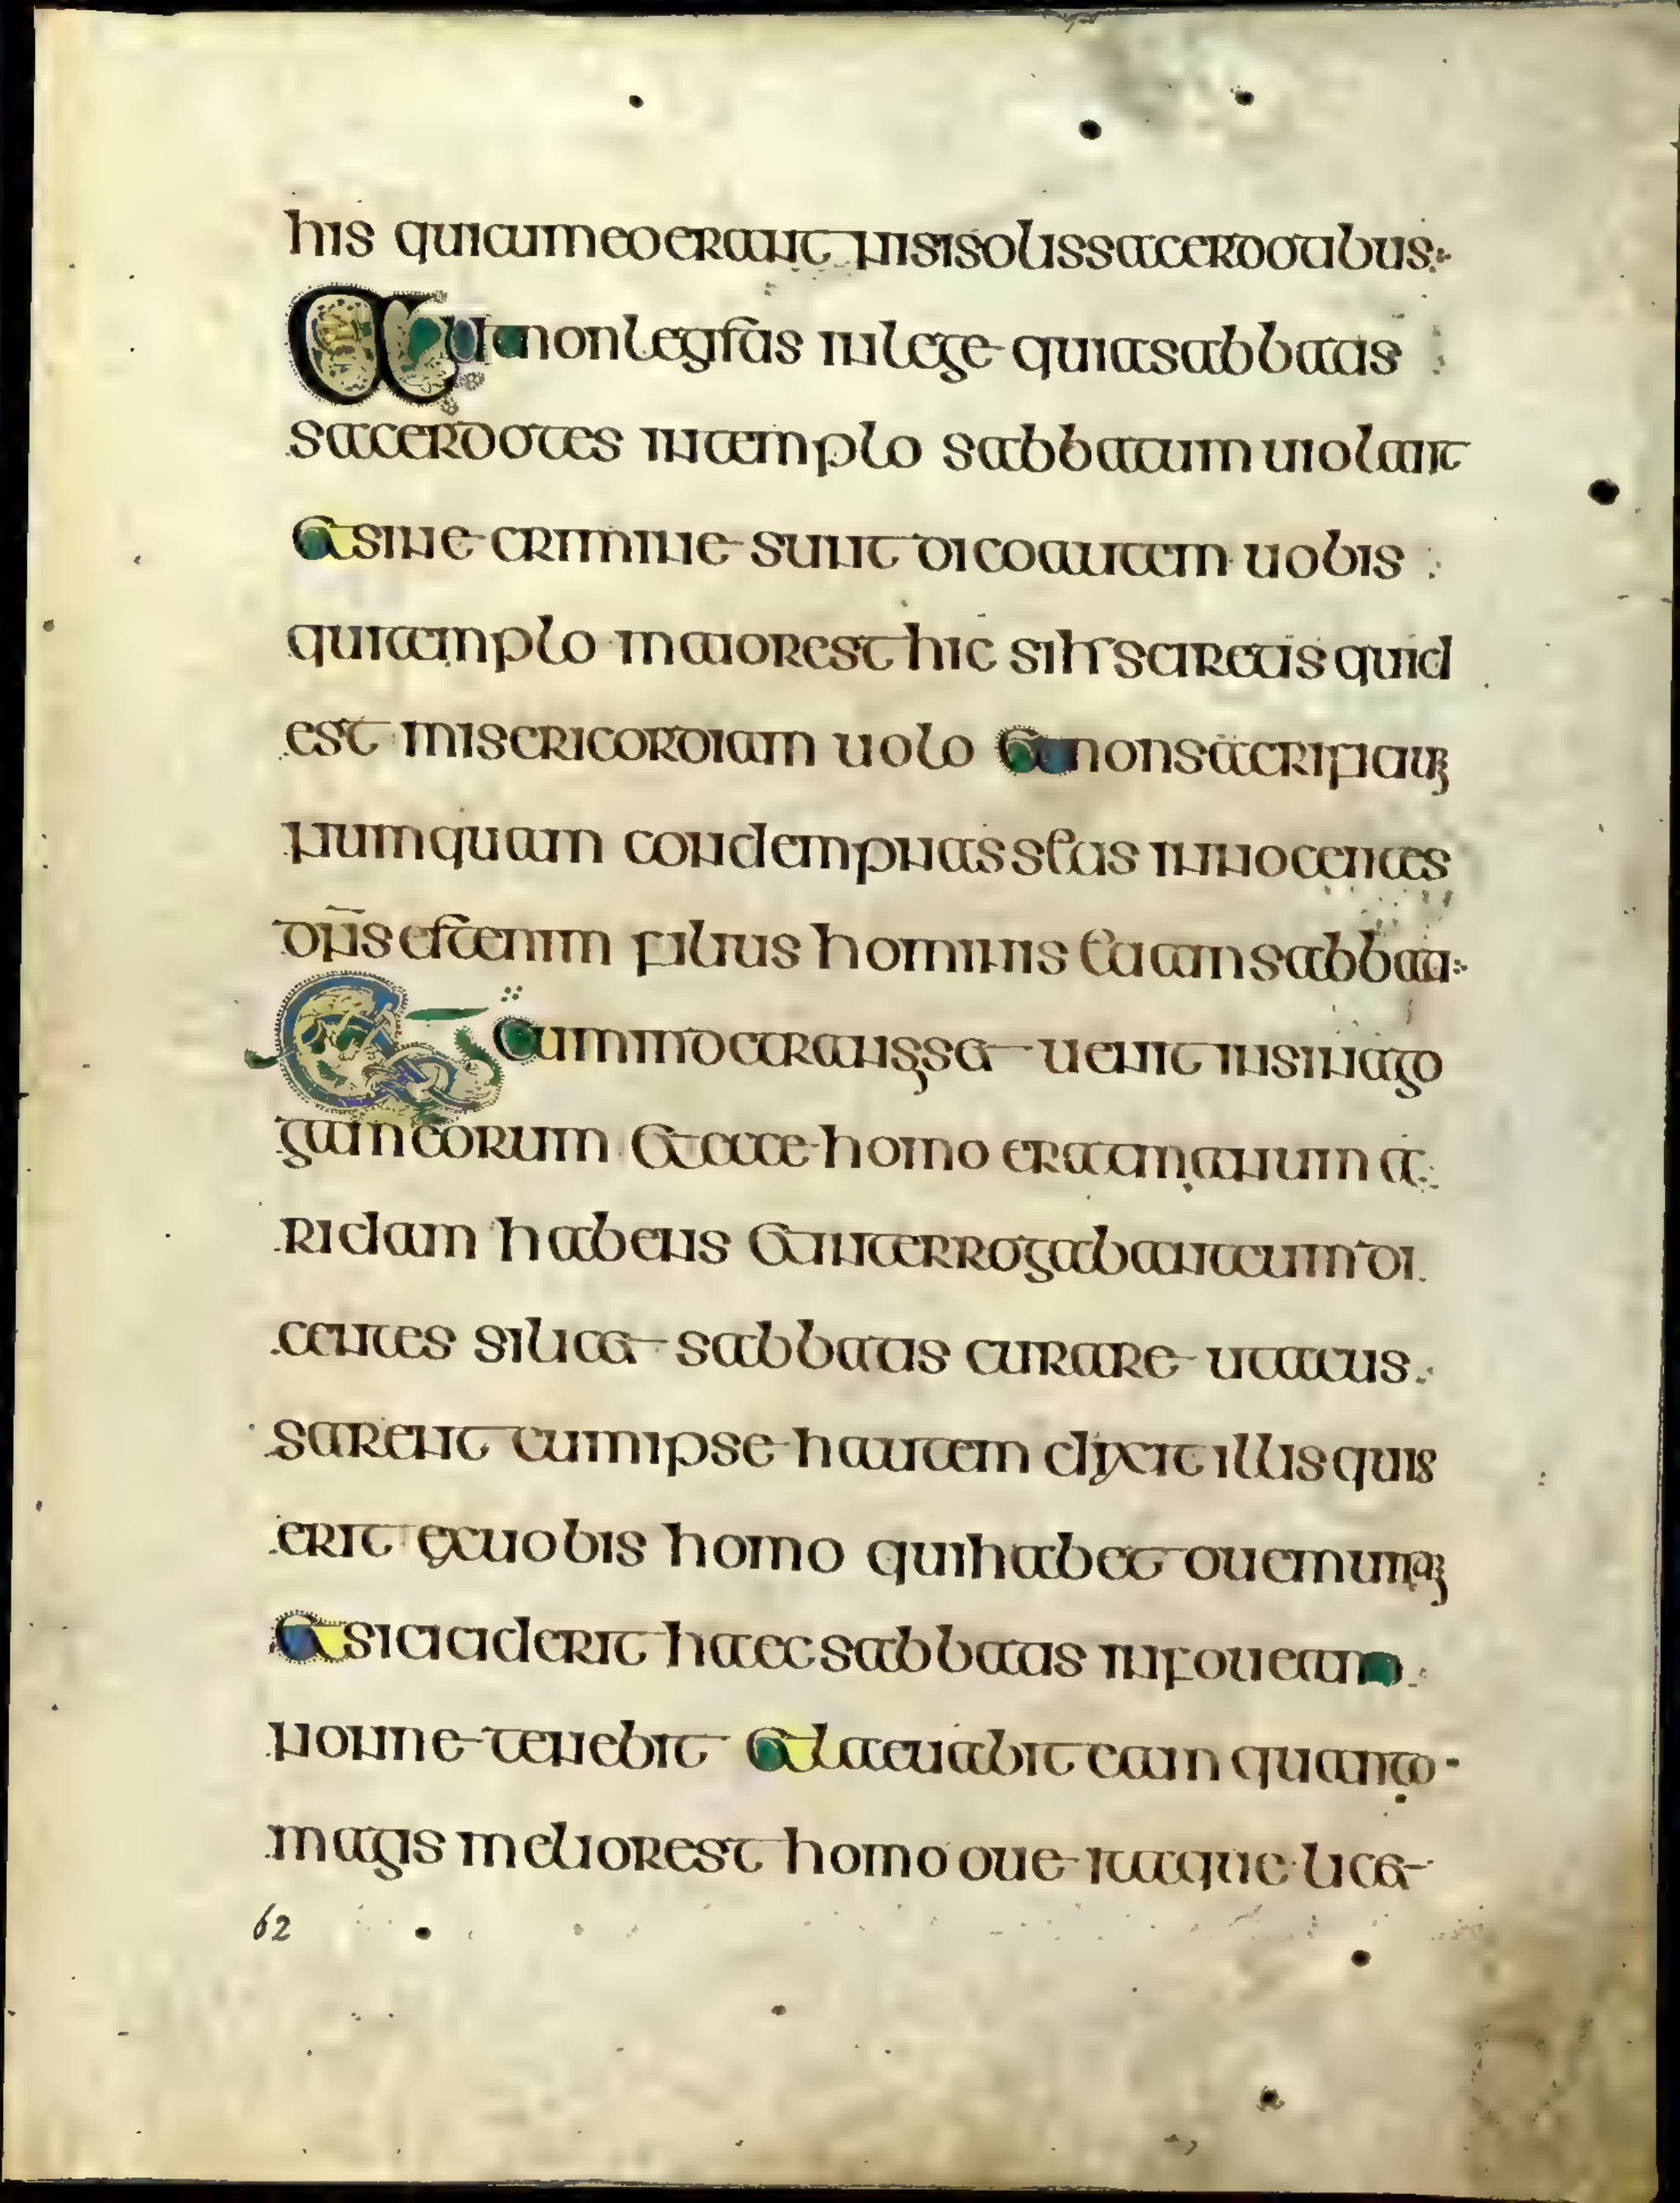 his qui cum eo erant nisi solis sacerdotibus
Aut non legistis in lege quia sabbatis
sacerdotes in templo sabbatum uiolant
et sine crimine sunt dico autem uobis
qui templo maior est hic si h sciretis quid
est misericordiam uolo et non sacrificium
numquam condempnassetis innocentes
dns est enim filius hominis etiam sabbati
Et cum inde transisset uenit in sinago
gam eorum et ecce homo erat manum a
ridam habens et interrogabant eum di
centes si licet sabbatis curare ut accus
sarent eum ipse h autem dixit illis quis
erit ex uobis homo qui habet ouem unam
et si ciciderit haec sabbatis in foueam
nonne tenebit et laeuabit eam quanto
magis melior est homo oue itaque licet
62